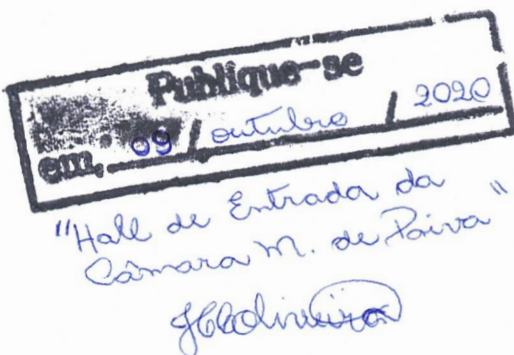 Publique-se
em, 09 / outubro / 2020
"Hall de Entrada da
Câmara M. de Paiva"